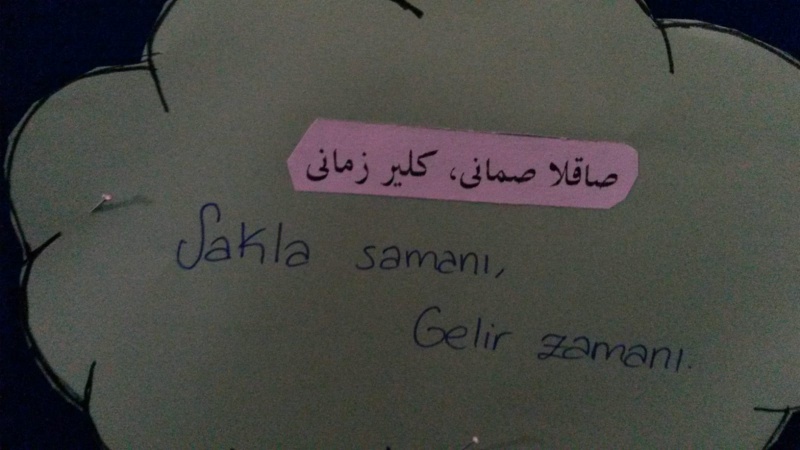 صاقلا صمانی، کلیر زمانی
Sakla samanı,
Gelir zamanı.